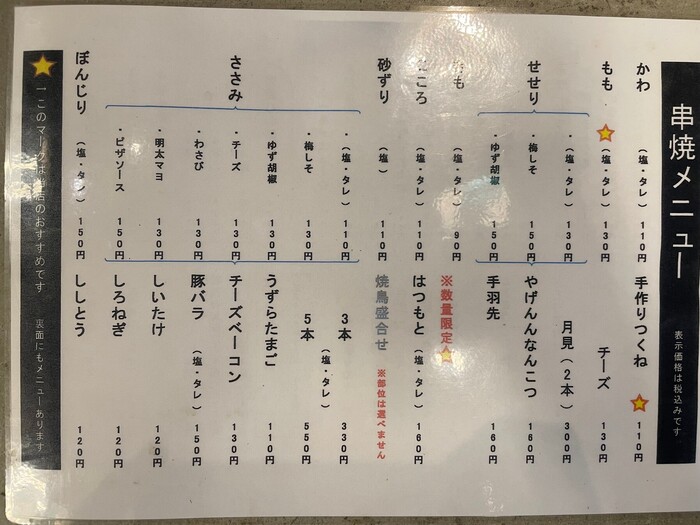 串焼メニュー
表示価格は税込みです
かわ (塩・タレ) 110円
もも ★ (塩・タレ) 130円
せせり
・(塩・タレ) 130円
・梅しそ 150円
・ゆず胡椒 150円
(塩・タレ) 90円
(塩・タレ) 110円
砂ずり (塩) 110円
ささみ
・(塩・タレ) 110円
・梅しそ 130円
・ゆず胡椒 130円
・チーズ 130円
・わさび 130円
・明太マヨ 130円
・ピザソース 150円
ぼんじり (塩・タレ) 150円
手作りつくね ★ 110円
チーズ 130円
月見(2本) 300円
やげんんなんこつ 160円
手羽先 160円
※数量限定★
はつもと (塩・タレ) 160円
焼鳥盛合せ ※部位は選べません
3本 330円
(塩・タレ)
5本 550円
うずらたまご 110円
チーズベーコン 130円
豚バラ (塩・タレ) 150円
しいたけ 120円
しろねぎ 120円
ししとう 120円
★ーこのマークは当店のおすすめです
裏面にもメニューあります